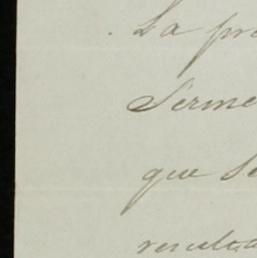 La pr
Serme
que se
resulta